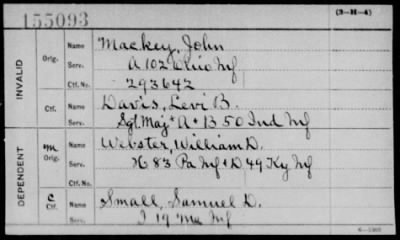 155093
(3-H-4)
INVALID
Orig. Name Mackey, John
Serv. A 102 Ohio Inf
Ctf. No. 293642
Ctf. Name Davis, Levi B.
Serv. Sgt Maj + A + B 50 Ind Inf
DEPENDENT
m Orig. Name Webster, William D.
Serv. H 83 Pa Inf + D 49 Ky Inf
Ctf. No.
C Ctf. Name Small, Samuel D.
Serv. I 19 Me Inf